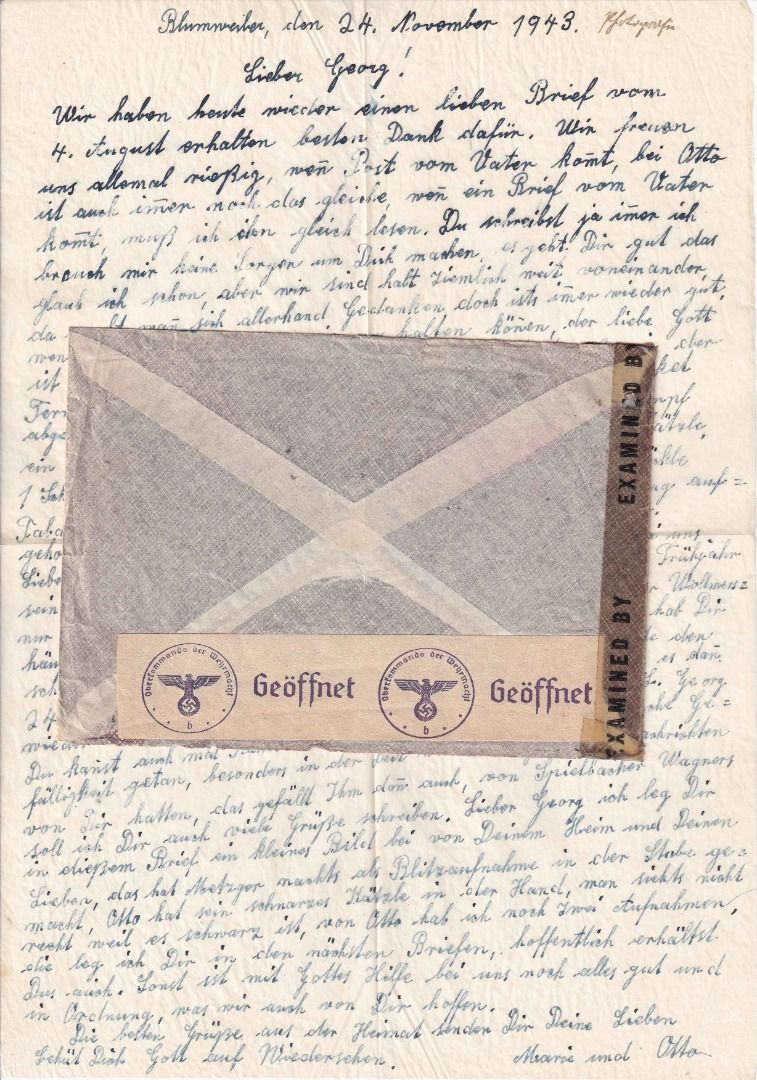 Blumweiler, den 24. November 1943.
Lieber Georg!
Wir haben heute wieder einen lieben Brief vom
4. August erhalten besten Dank dafür. Wir freuen
uns allemal rießig, weñ Post vom Vater kom̄t, bei Otto
ist auch im̄er noch das gleiche, weñ ein Brief vom Vater
kom̄t, muß ich ihn gleich lesen. Du schreibst ja im̄er ich
brauch mir keine Sorgen um Dich machen, es geht Dir gut das
glaub ich schon, aber wir sind halt ziemlich weit voneinander,
da mañ sich allerhand Gedanken, doch ists im̄er wieder gut,
wen halten köñen, der liebe Gott
ist der
Fer ket
abge pf
ein ätzle,
1 Sch kle
Taba ng auf=
geho uns
Liebe Frühjahr
sein r Wollmers=
nur hab Dir
häu e den
sch es dañ
24 L. Georg
wied che Ge=
Du kañst auch mal achrichten
fälligkeit getan, besonders in der Zeit
von Dir hatten, das gefällt Ihm doñ auch, von Spielbacher Wagners
soll ich Dir auch viele Grüße schreiben. Lieber Georg ich leg Dir
in dießem Brief ein kleines Bild bei von Deinem Heim und Deinen
Lieben, das hat Metzger nachts als Blitzaufnahme in der Stube ge=
macht, Otto hat sein schwarzes Kätzle in der Hand, man siehts nicht
recht weil es schwarz ist, von Otto hab ich noch zwei Aufnahmen,
die leg ich Dir in den nächsten Briefen, hoffentlich erhältst
Dus auch. Sonst ist mit Gottes Hilfe bei uns noch alles gut und
in Ordnung, was wir auch von Dir hoffen.
Die besten Grüße aus der Heimat senden Dir Deine Lieben
Behüt Dich Gott auf Wiedersehen. Marie und Otto
EXAMINED BY
EXAMINED BY
Oberkommando der Wehrmacht
b
Geöffnet
Oberkommando der Wehrmacht
b
Geöffnet